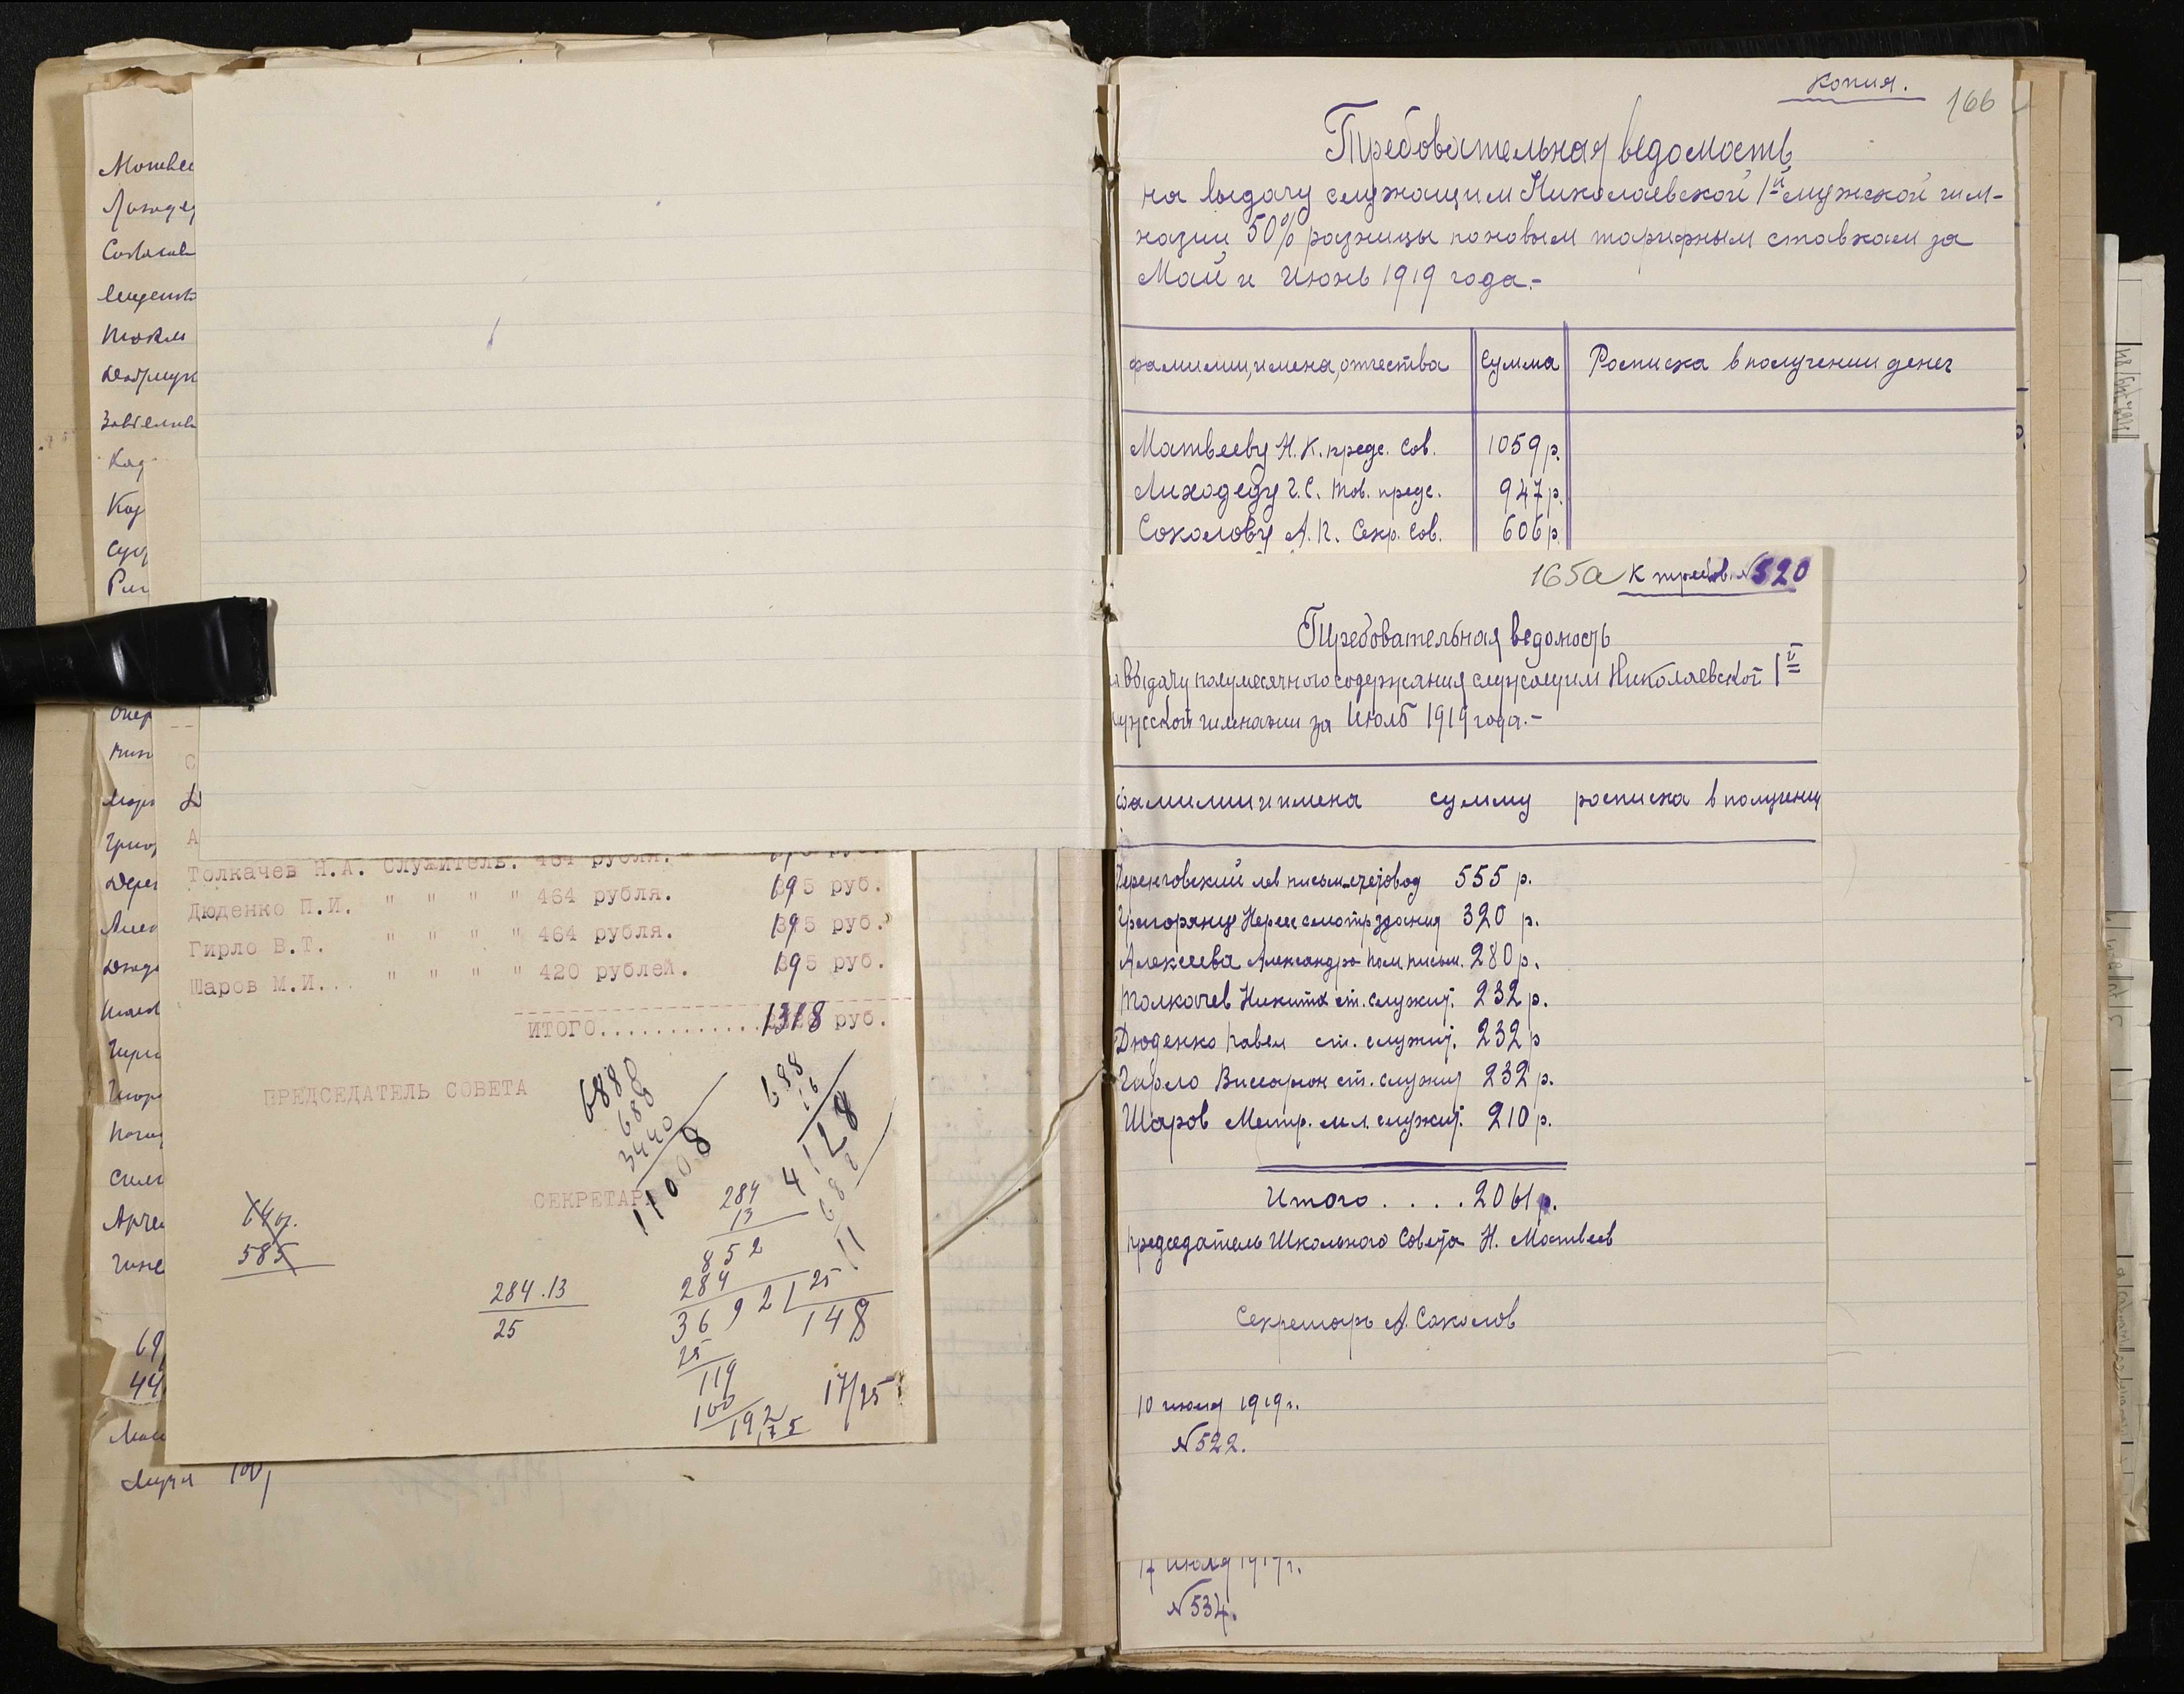 Матвее
Лиходед
Соколов
Кад
Кор
Толкачев Н.А. Служитель. 464 рубля.
Дюденко П.И. " " " " 464 рубля. 195 руб.
Гирло В.Т. " " " " 464 рубля. 195 руб.
Шаров М.И... " " " " 420 рублей. 195 руб.
ИТОГО............1318 руб.
ПРЕДСЕДАТЕЛЬ СОВЕТА
СЕКРЕТАРЬ
6880
688
3440
11008
688
16
4128
688
11
284
13
852
284
3692 25
148
25
119
100
192
175
17/25
585
284.13
25
69
44
Копия.
166
Требовательная ведомость
на выдачу служащим Николаевской 1й мужской гим-
назии 50% разницы по новым тарифным ставкам за
Май и Июнь 1919 года.-
фамилии, имена, отчества Сумма Росписка в получении денег
Матвееву Н.К. предс. Сов. 1059 р.
Лиходеду Г.С. тов. предс. 947 р.
Соколову А.П. Секр. Сов. 606 р.
165а К требов. № 520
Требовательная ведомость
выдачу полумесячного содержания служащим Николаевской 1й
ужской гимназии за Июль 1919 года.-
фамилии и имена сумму росписка в получении
Церенговский Лев письм. счетовод 555 р.
Григорянц Нерсес смотр здания 320 р.
Алексеева Александра пом. письм. 280 р.
Толкачев Никита ст. служит. 232 р.
Дюденко Павел ст. служит. 232 р
Гирло Виссарион ст. служит 232 р.
Шаров Митр. мл. служит. 210 р.
Итого . . . . 2061 р.
председатель Школьного Совета Н. Матвеев
Секретарь А. Соколов
10 июля 1919 г.
№ 522.
17 июля 1919 г.
№ 534.